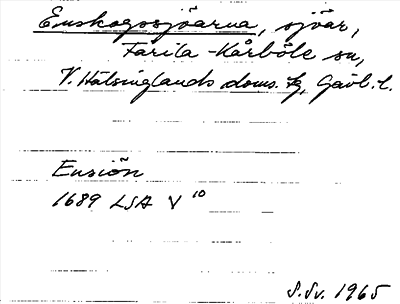 Enskogssjöarna, sjöar,
Färila-Kårböle sn,
V. Hälsinglands doms. tg, Gävl. l.
Ensiön
1689 LSA V 10
S.Sv. 1965